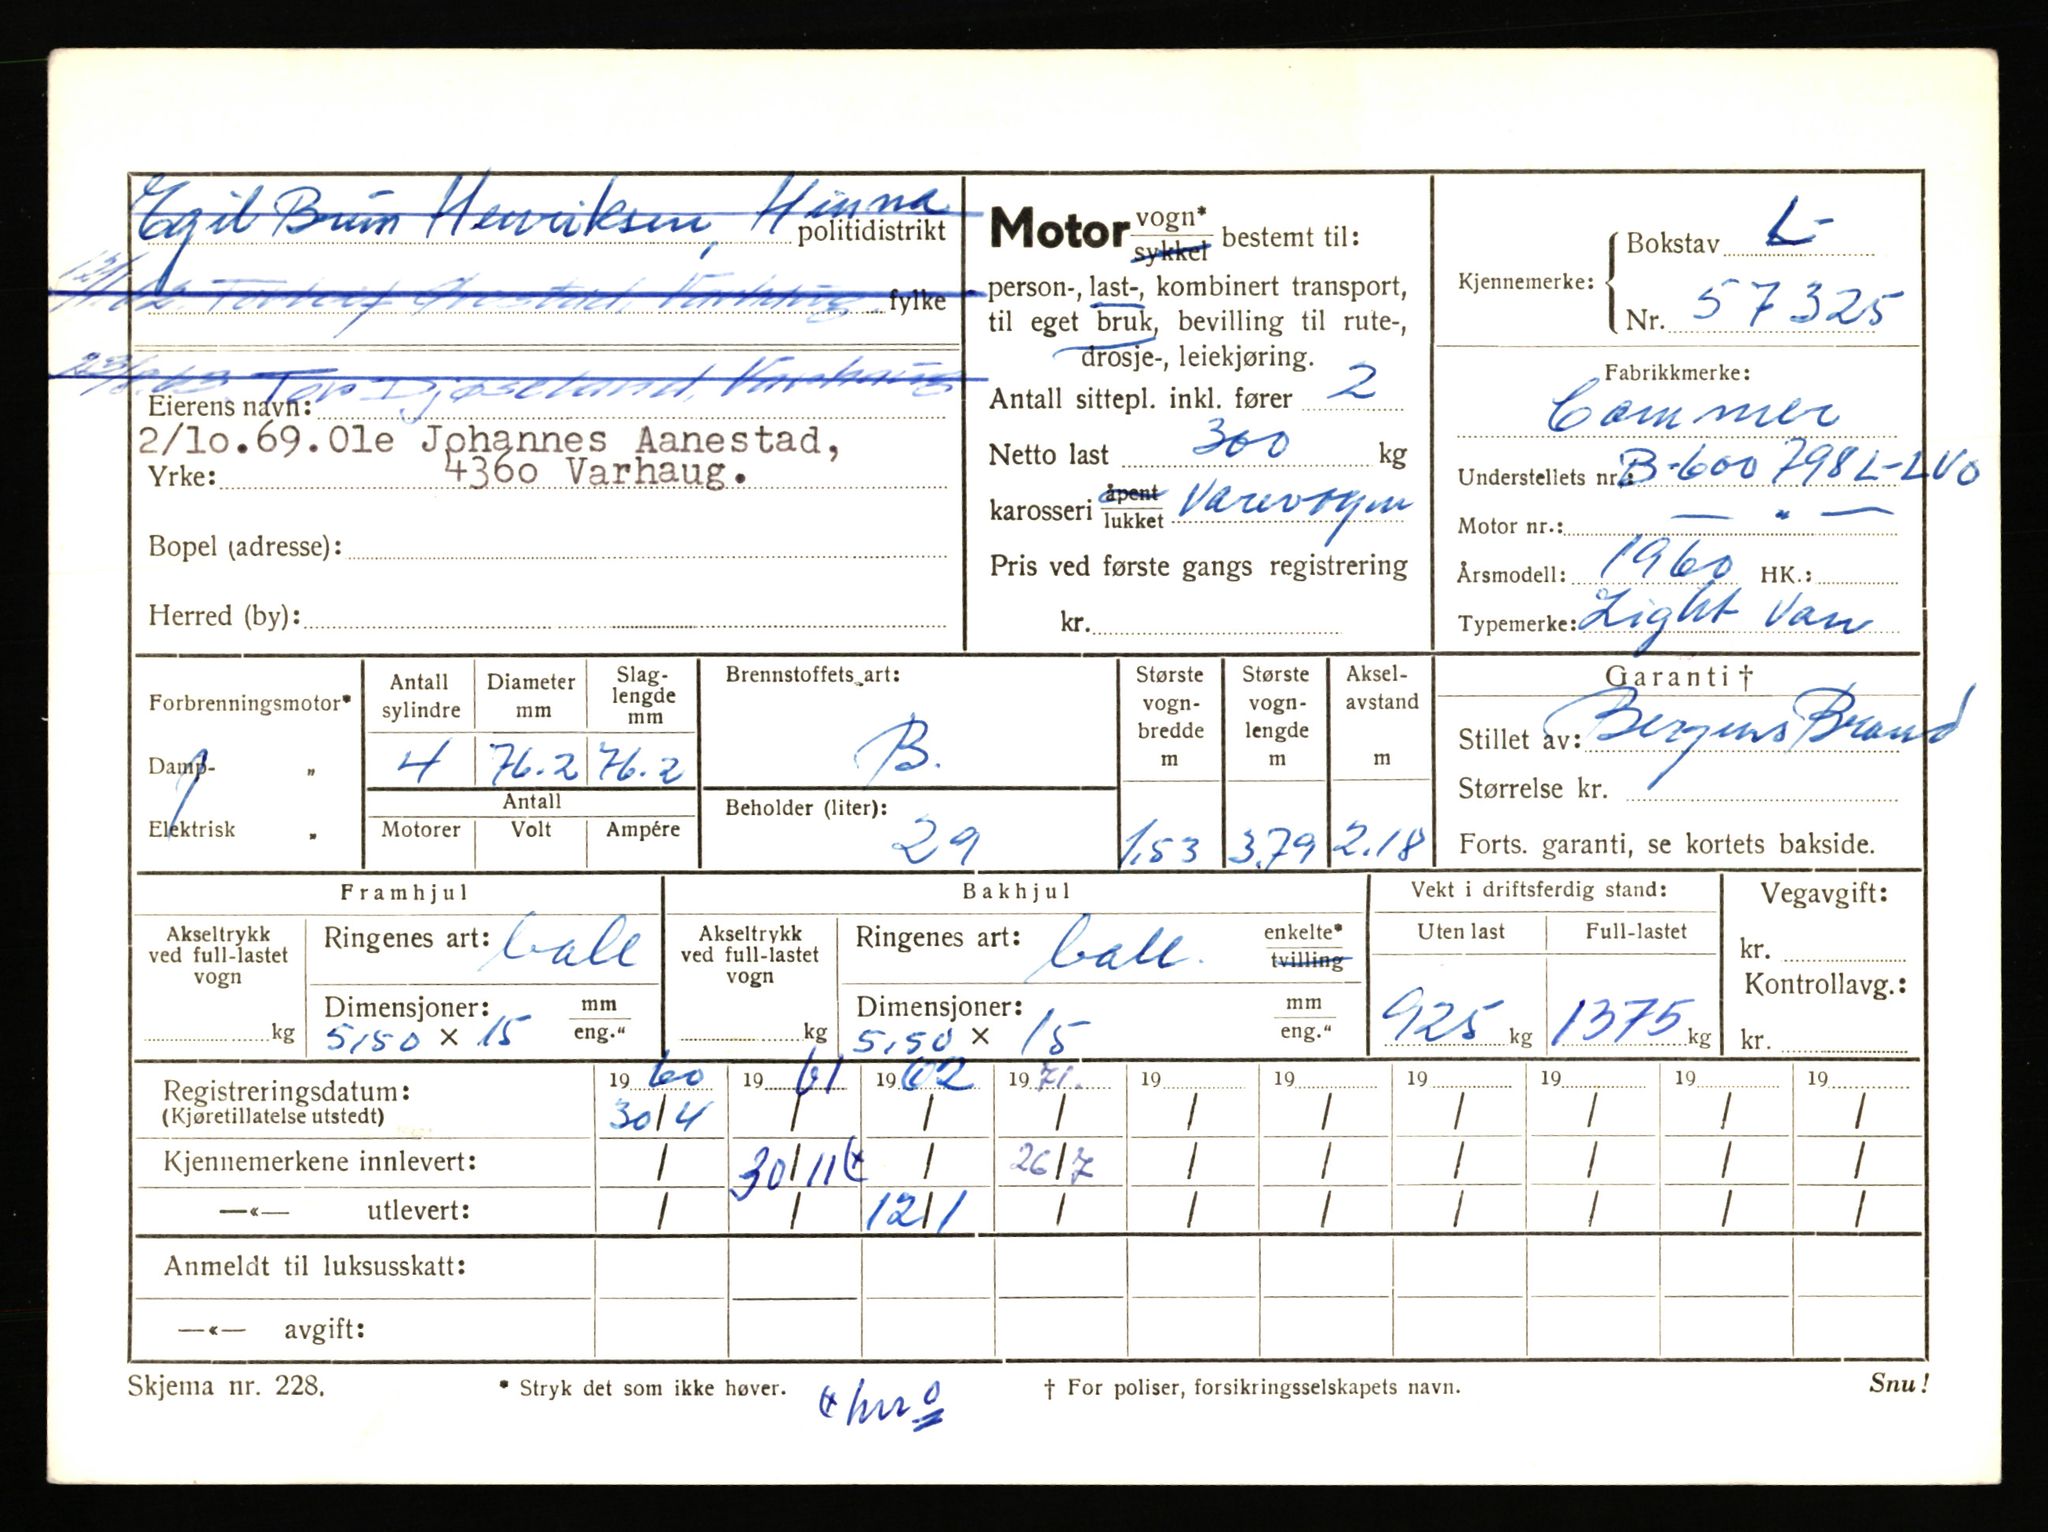 Egil Brun Henriksen, Hinna
politidistrikt
fylke
Varhaug
Eierens navn:
2/lo.69.Ole Johannes Aanestad,
Yrke: 4360 Varhaug.
Bopel (adresse):
Herred (by):
Motor vogn* sykkel bestemt til:
person-, last-, kombinert transport,
til eget bruk, bevilling til rute-,
drosje-, leiekjøring.
Antall sittepl. inkl. fører 2
Netto last 300 kg
karosseri åpent lukket Varevogn
Pris ved første gangs registrering
kr.
Kjennemerke: Bokstav L-
Nr. 57325
Fabrikkmerke:
Commer
Understellets nr.: B-600798L-LVO
Motor nr.: — " —
Årsmodell: 1960 HK.:
Typemerke: Light Van
Forbrenningsmotor*
Damp- „
Elektrisk „
Antall sylindre
Diameter mm
Slag-lengde mm
4 76.2 76.2
Antall
Motorer Volt Ampére
Brennstoffets art:
B.
Beholder (liter):
29
Største vogn-bredde m
1,53
Største vogn-lengde m
3,79
Aksel-avstand m
2.18
Garanti †
Stillet av: Bergens Brand
Størrelse kr.
Forts. garanti, se kortets bakside.
Framhjul
Akseltrykk ved full-lastet vogn
kg
Ringenes art: ball
Dimensjoner: mm
5,50 × 15 eng."
Bakhjul
Akseltrykk ved full-lastet vogn
kg
Ringenes art: ball. enkelte* tvilling
Dimensjoner: mm
5,50 × 15 eng."
Vekt i driftsferdig stand:
Uten last Full-lastet
925 kg 1375 kg
Vegavgift:
kr.
Kontrollavg.:
kr.
Registreringsdatum: 1960 1961 1962 1971. 19 19 19 19 19 19
(Kjøretillatelse utstedt) 30/4 / / / / / / / / /
Kjennemerkene innlevert: / 30/11 (x / 26/7 / / / / / /
—«— utlevert: / / 12/1 / / / / / / /
Anmeldt til luksusskatt:
—«— avgift:
Skjema nr. 228.
* Stryk det som ikke høver.
† For poliser, forsikringsselskapets navn.
Snu!